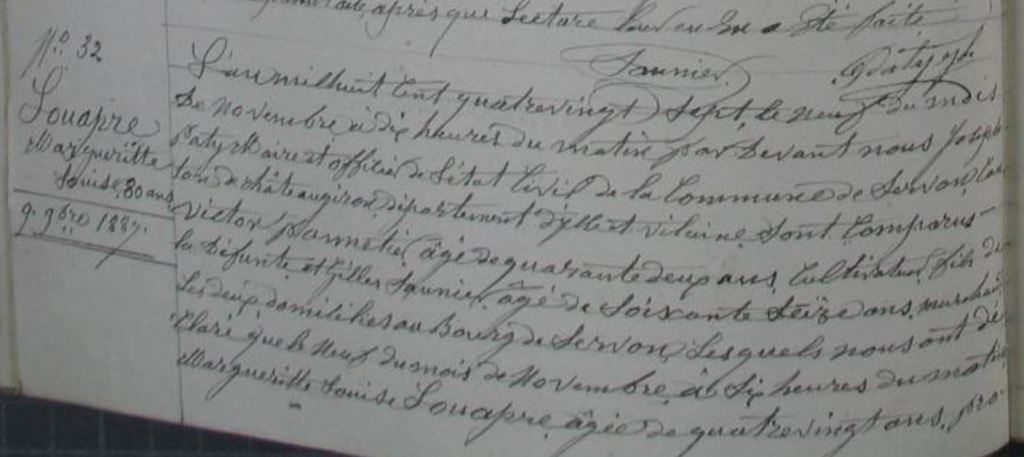 après que Lecture leur en a été faite
Saunier
N.o 32
Louapre
Margueritte
Louise, 80 ans
9. 9bre 1887.
L'an mil huit cent quatrevingt sept, le neuf du mois
de novembre à dix heures du matin par devant nous Joseph
Paty Maire et officier de L'état Civil de la Commune de Servon, Can
ton de châteaugiron, département d'ille et vilaine, Sont Comparus
Victor Parmetier âgé de quarante deux ans, Cultivateur, fils de
la défunte, et Gilles Saunier, âgé de Soixante Seize ans, marchand
Les deux domiciliés au Bourg de Servon, Lesquels nous ont dé
Claré que le Neuf du mois de Novembre, à Six heures du matin
Margueritte Louise Louapre, âgée de quatrevingt ans, pro